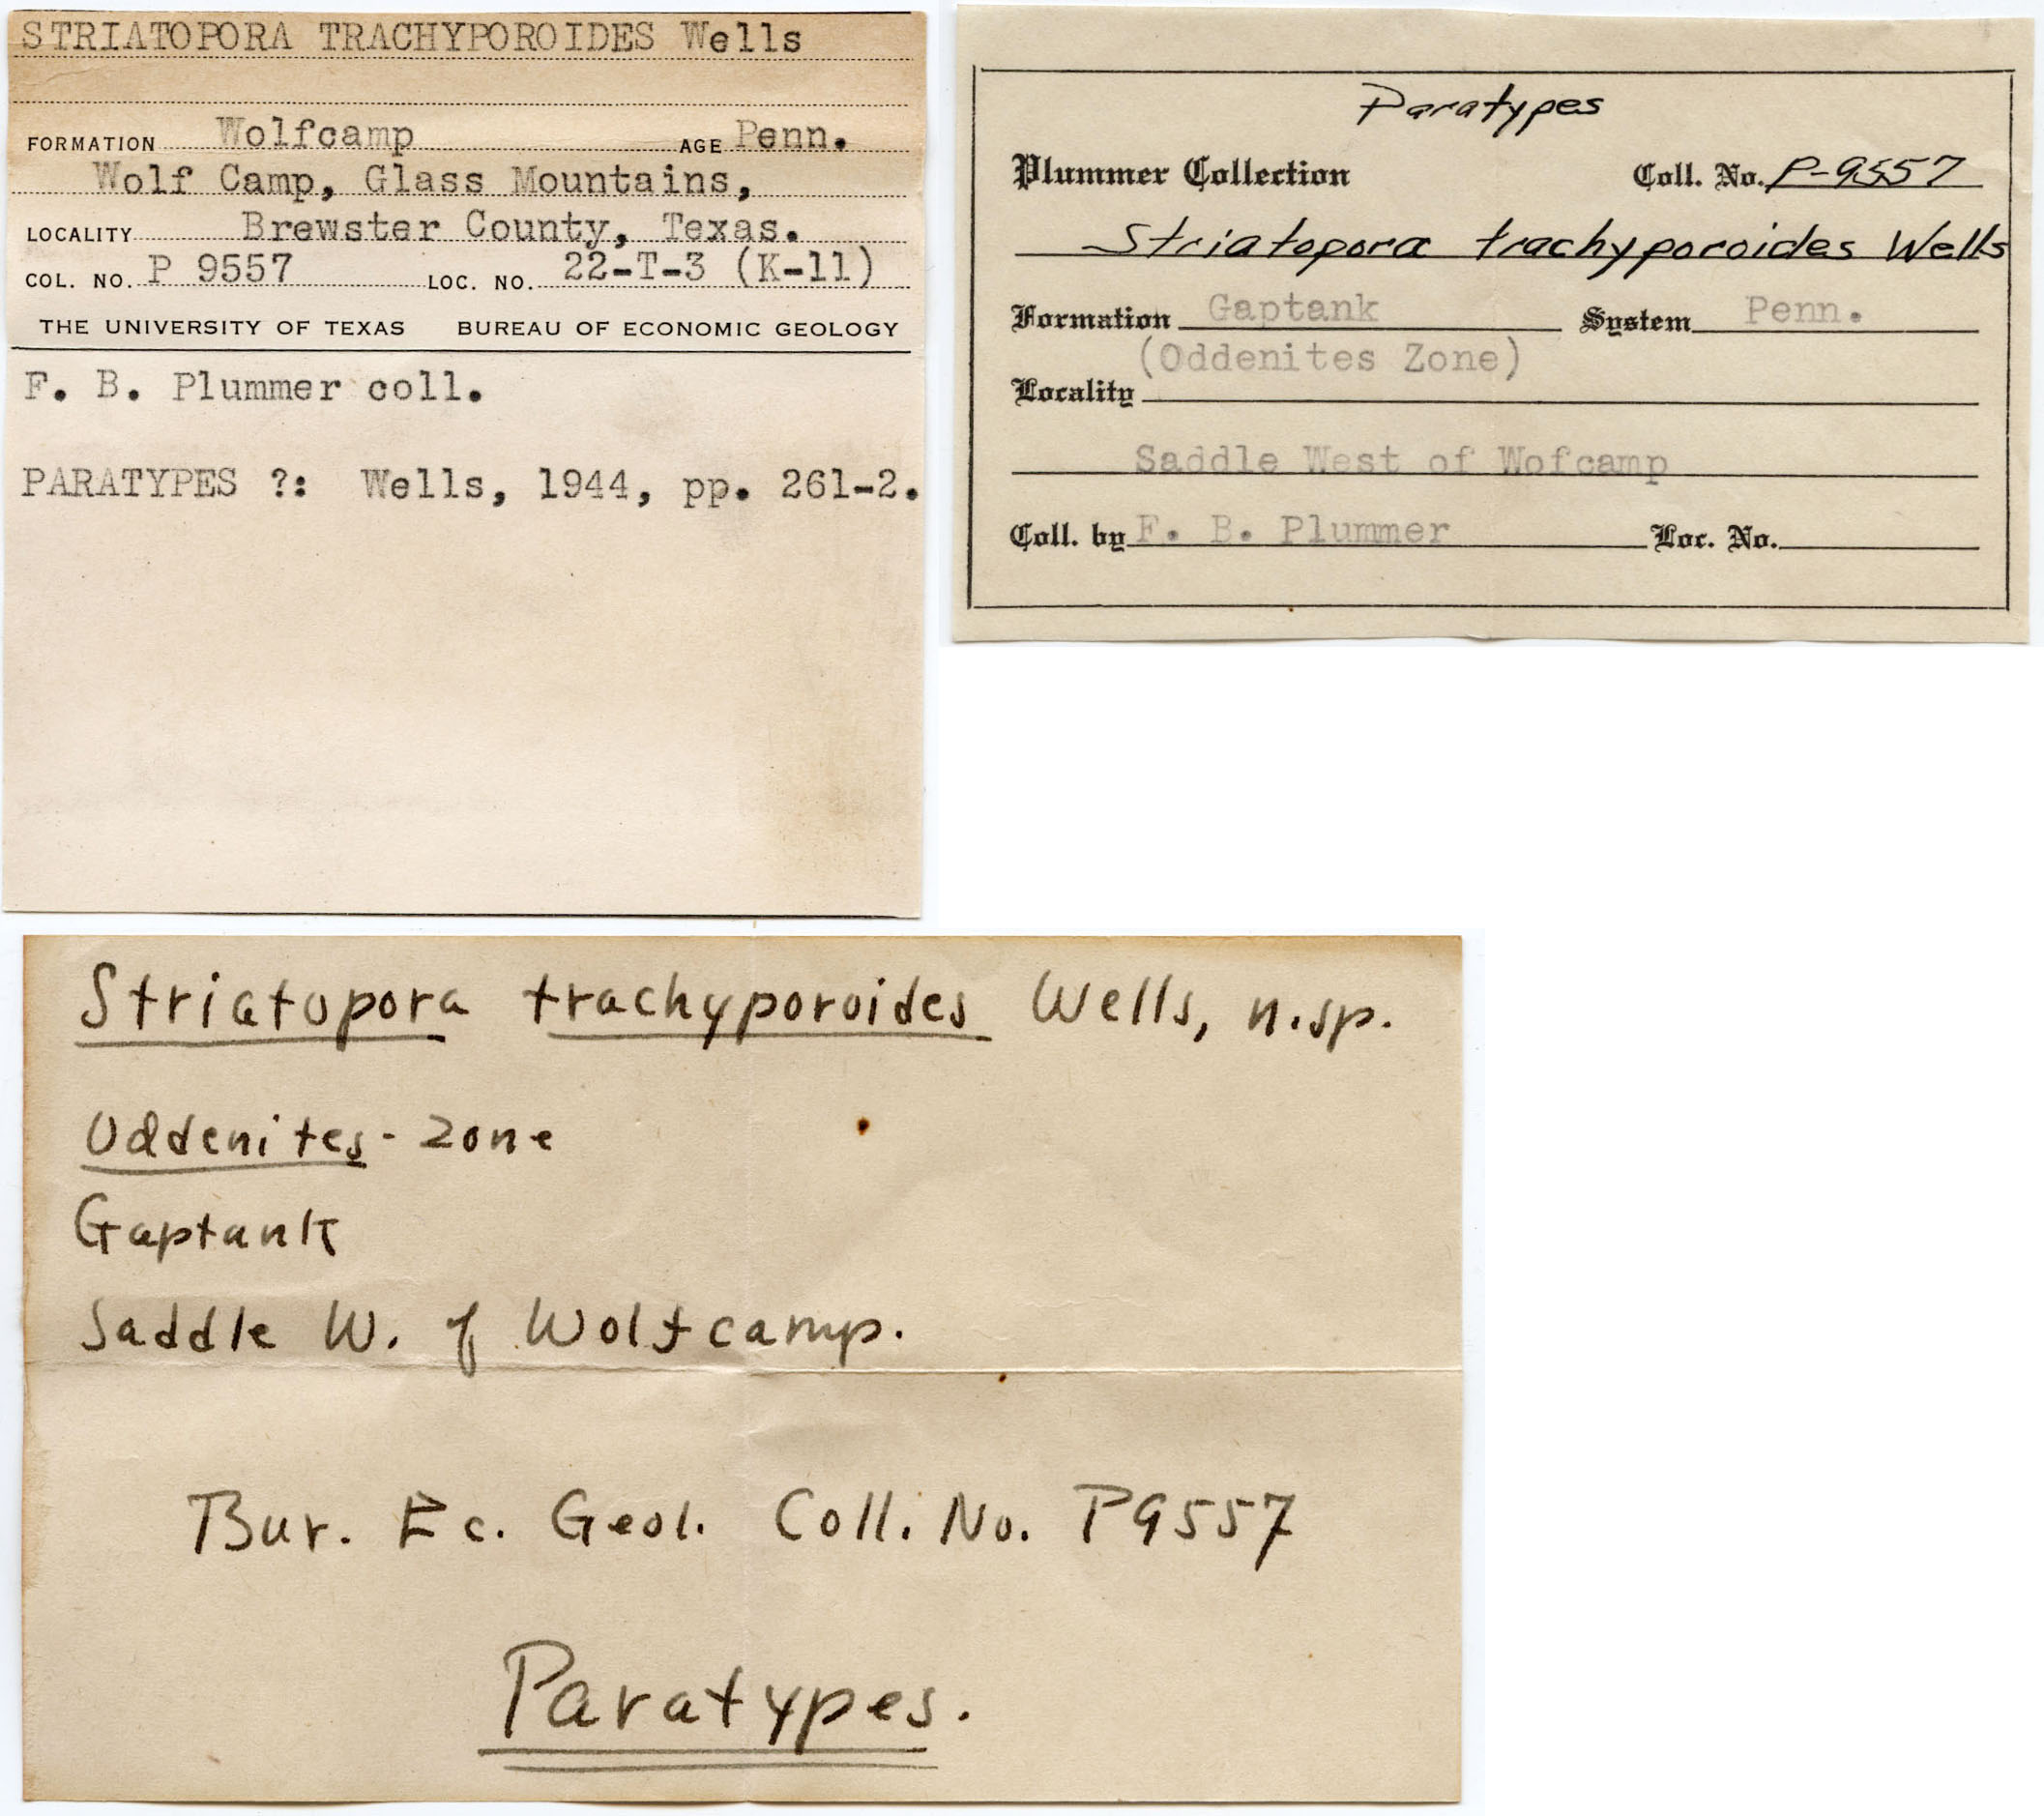 STRIATOPORA TRACHYPOROIDES Wells
FORMATION Wolfcamp AGE Penn.
Wolf Camp, Glass Mountains,
LOCALITY Brewster County, Texas.
COL. NO. P 9557 LOC. NO. 22-T-3 (K-11)
THE UNIVERSITY OF TEXAS BUREAU OF ECONOMIC GEOLOGY
F. B. Plummer coll.
PARATYPES ?: Wells, 1944, pp. 261-2.
Paratypes
Plummer Collection Coll. No. P-9557
Striatopora trachyporoides Wells
Formation Gaptank System Penn.
(Oddenites Zone)
Locality
Saddle West of Wofcamp
Coll. by F. B. Plummer Loc. No.
Striatopora trachyporoides Wells, n.sp.
Uddenites - zone
Gaptank
Saddle W. of Wolfcamp.
Bur. Ec. Geol. Coll. No. P9557
Paratypes.